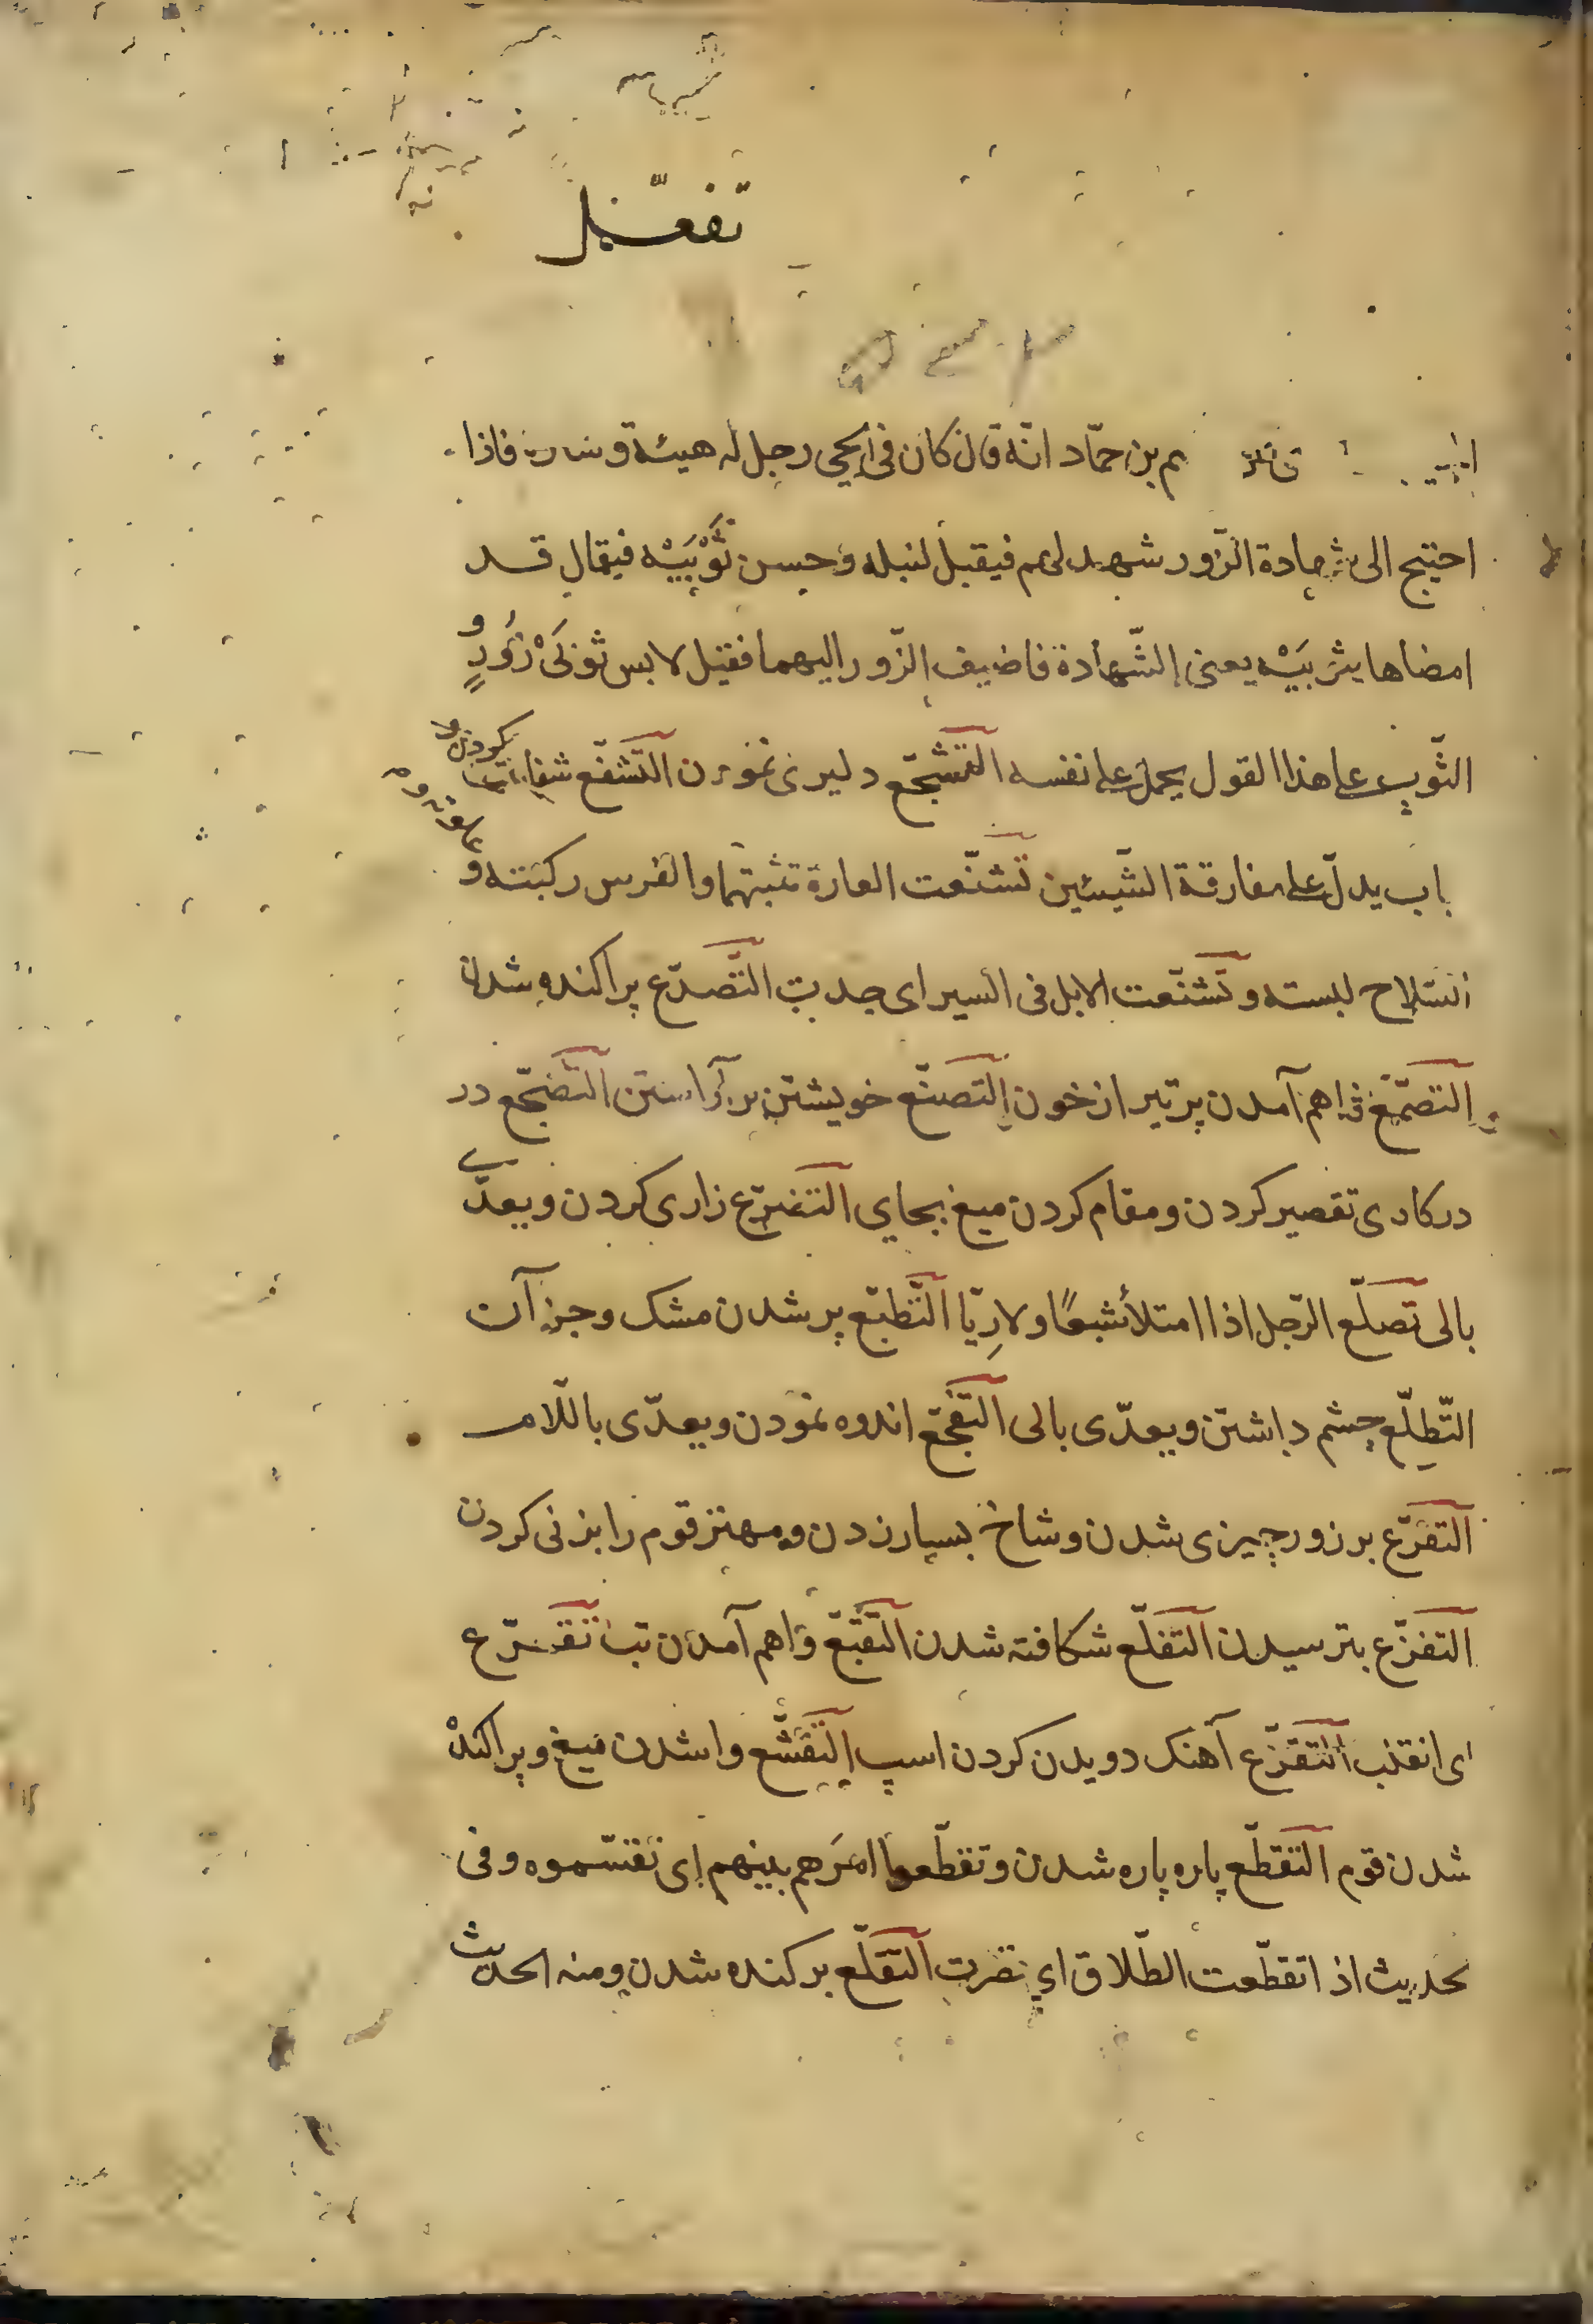 تفعّل
نعيم بن حمّاد انّه قال كان فى الحى رجل له هيئة و فاذا
احتيج الى شهادة الزّور شهد لهم فيقبل لنبله وحسن ثَوْبَيْه فيقال قد
امضاها بثوبَيْه يعنى الشّهادة فاضيف الزّور اليهما فقيل لابس ثوبَىْ زُورٍ و
الثّوب على هذا القول يحمل على نفسه التّشجّع دليرى نمودن التّشفّع شفاعت كردن و
باب يدلّ على مفارقة الشّيئين تشنّعت الغارة بثثتها والفرس ركبته و
السّلاح لبسته و تشنّعت الابل فى السير اى جدّت التّصدّع پراكنده شدن
التصمّع فراهم آمدن پر تير از خون التصنّع خويشتن بر آراستن التّضجّع در
در كارى تقصير كردن و مقام كردن ميغ بجاى التضرّع زارى كردن و يعدّى
بالى تضلّع الرّجل اذا امتلأ شبعًا و لا رِيّا التّطبّع پر شدن مشک و جز آن
التّطلّع چشم داشتن و يعدّى بالى التّفجّع اندوه نمودن و يعدّى باللّام
التفرّع بر زور چيزى شدن و شاخ بسيار زدن و مهتر قوم را بزنى كردن
التفزّع بترسيدن التفلّع شكافته شدن التّقبّع فراهم آمدن تب تقرّع
اى انقلب التّقزّع آهنک دويدن كردن اسپ التّقشّع وا شدن ميغ و پراكنده
شدن قوم التّقطّع پاره پاره شدن و تقطّعوا امرَهم بينهم اى تقسّموه و فى
حديث اذا تقطّعت الطّلاق اى التّقلّع بركنده شدن و منه الحديث